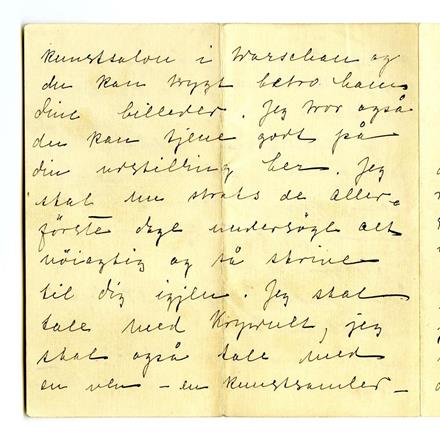 Kunstsalon i Warschau og
du kan trygt betro ham
dine billeder. Jeg tror også
du kan tjene godt på
din udstilling her. Jeg
skal nu straks de aller-
förste dage undersöge alt
nöiagtig og så skrive
til dig igjen. Jeg skal
tale med Krywult, jeg
skal også tale med
en ven – en Kunstsamler –